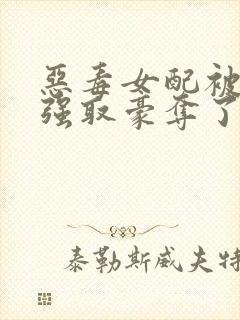 惡毒女配被
强取豪奪了
泰勒斯威夫特